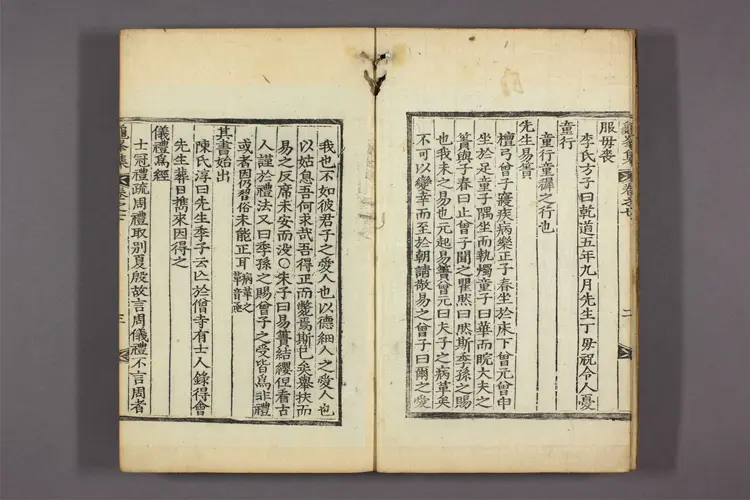 服毋喪
李氏方子曰乾道五年九月先生丁毋祝令人憂
童行
童行童穉之行也
先生易簀
檀弓曾子寢疾病樂正子春坐於床下曾元曾申
坐於足童子隅坐而執燭童子曰華而睆大夫之
簀與子春曰止曾子聞之瞿然曰然斯季孫之賜
也我未之易也元起易簀曾元曰夫子之病革矣
不可以變幸而至於朝請敬易之曾子曰爾之愛
龜峯集 卷之七 二
我也不如彼君子之愛人也以德細人之愛人也
以姑息吾何求哉吾得正而斃焉斯已矣舉扶而
易之反席未安而没○朱子曰易簀結纓但看古
人謹於禮法又曰季孫之賜曾子之受皆爲非禮
或者因仍習俗未能正耳
其書始出
陳氏淳曰先生季子云亡於僧寺有士人錄得會
先生葬日携來因得之
儀禮爲經
士冠禮疏周禮取別夏殷故言周儀禮不言周者
龜峯集 卷之七 三